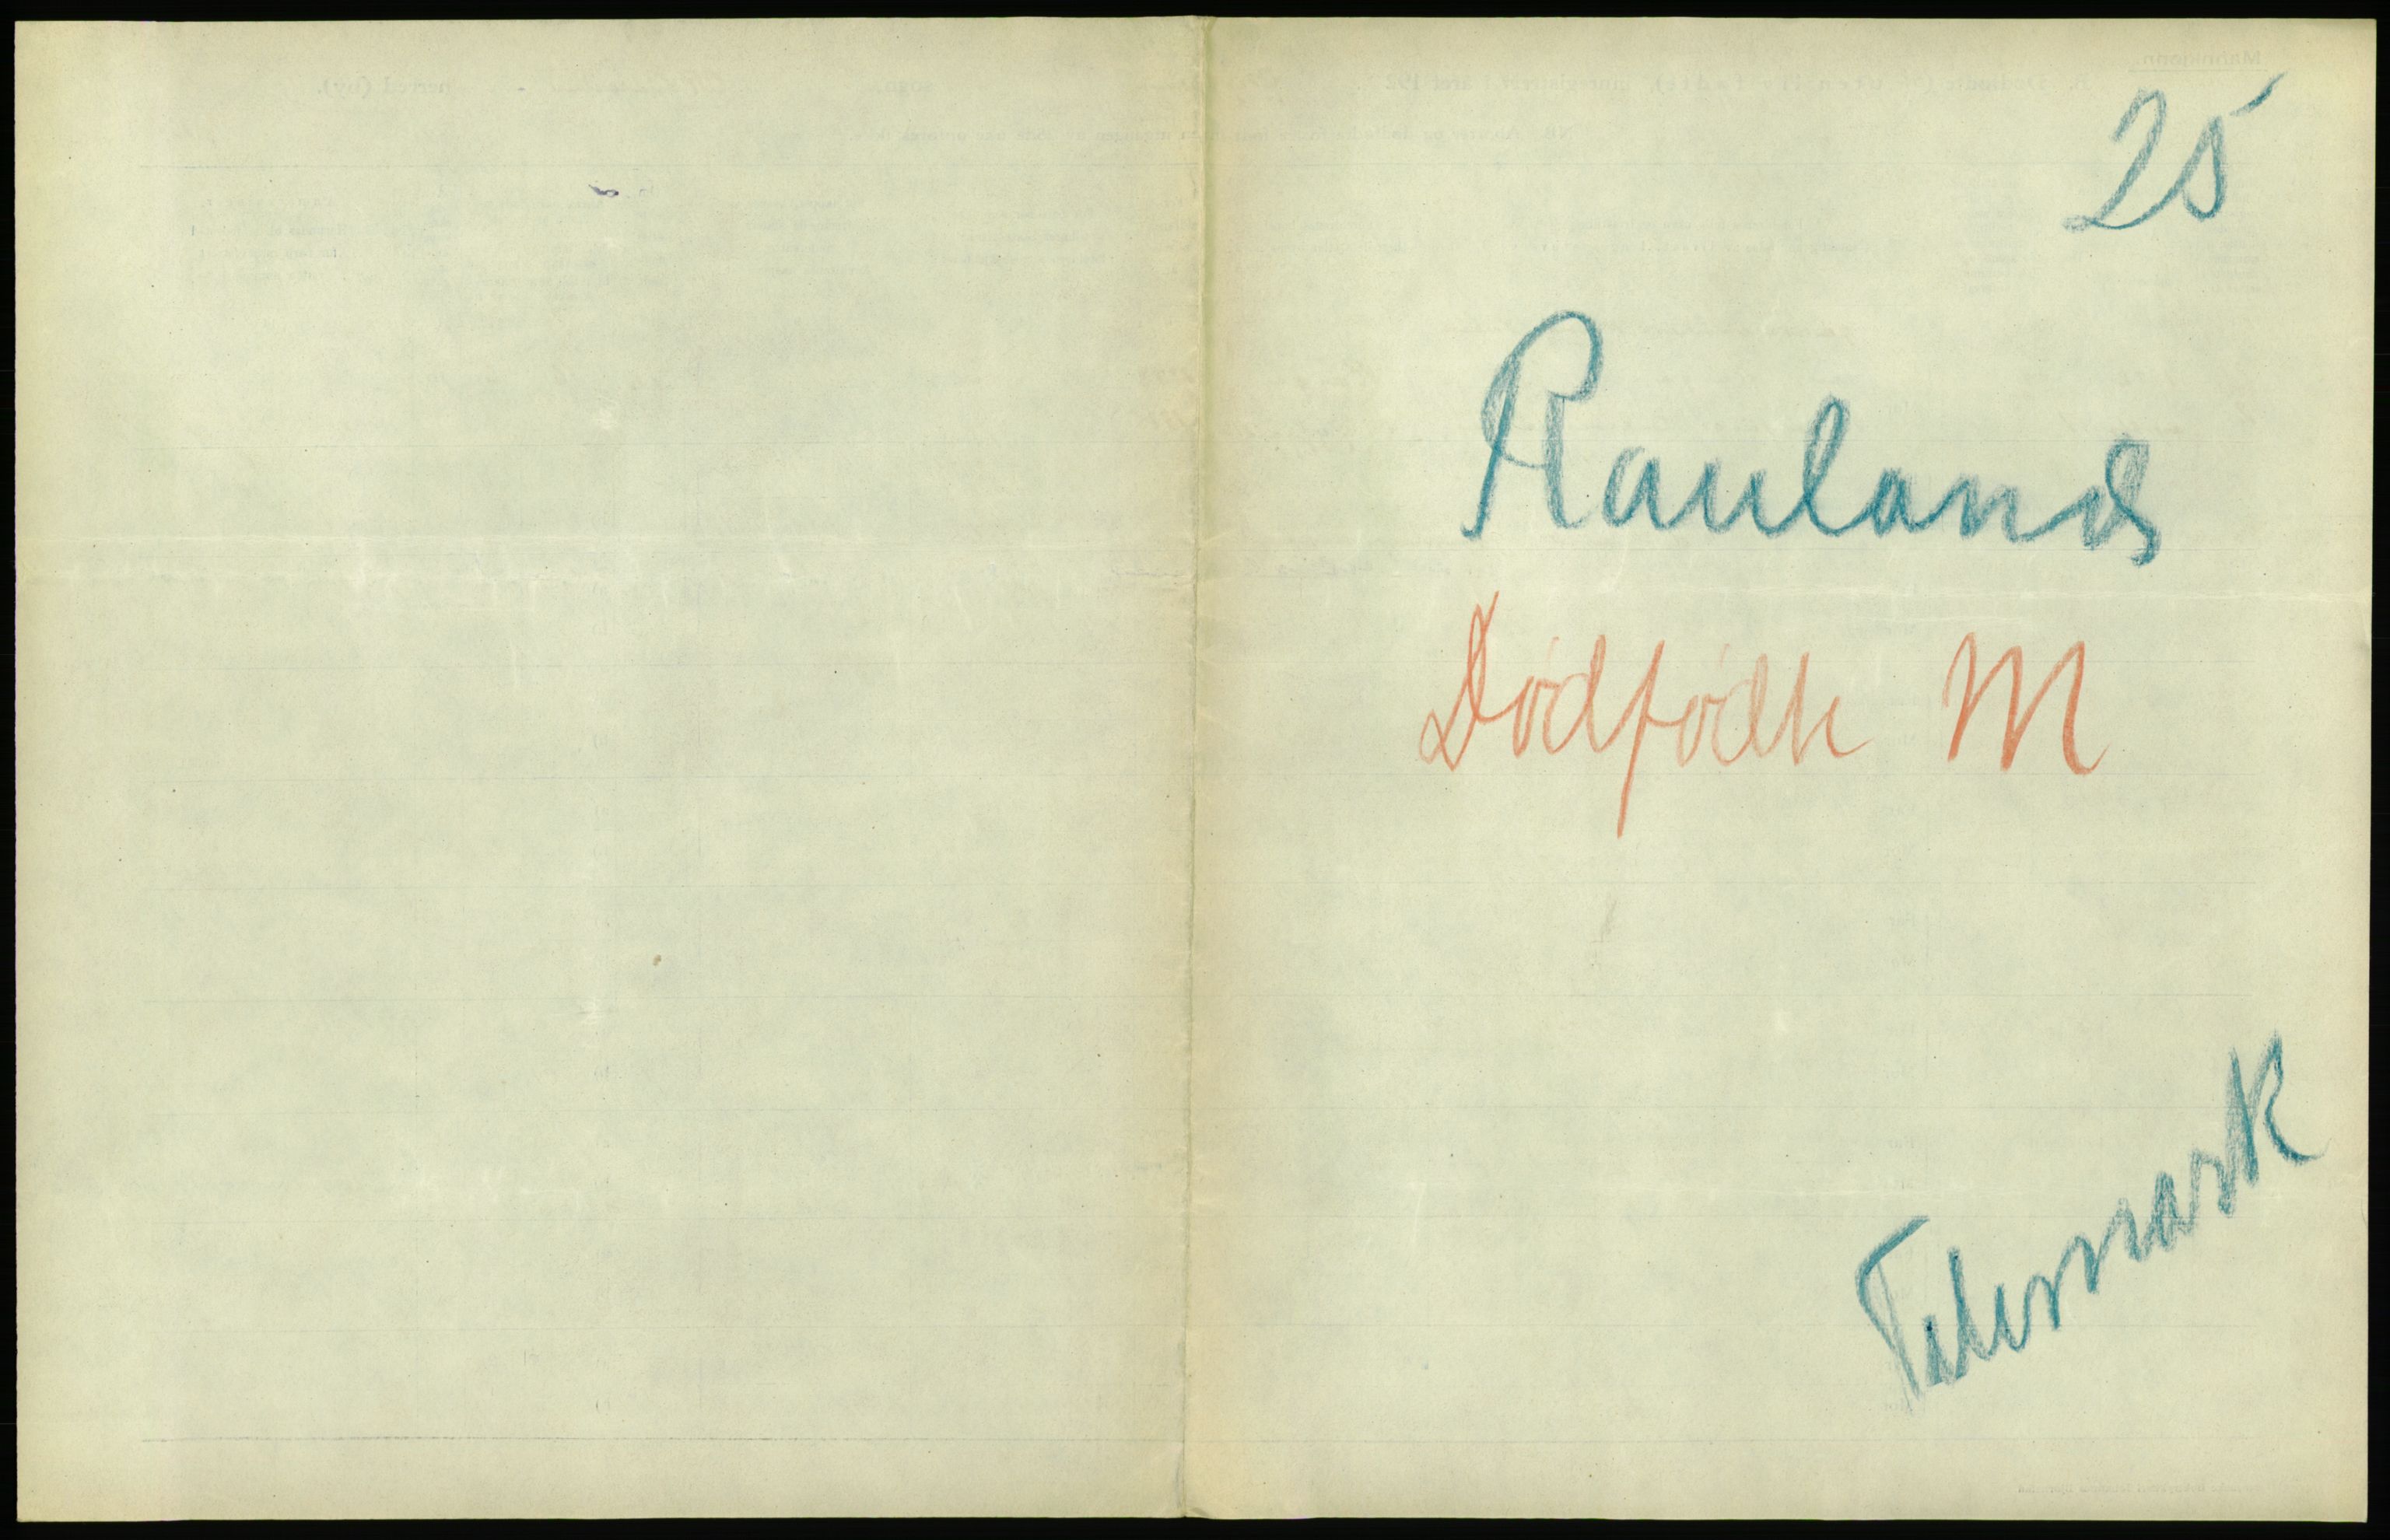 25
Rauland
Dødfødte M
Telemark